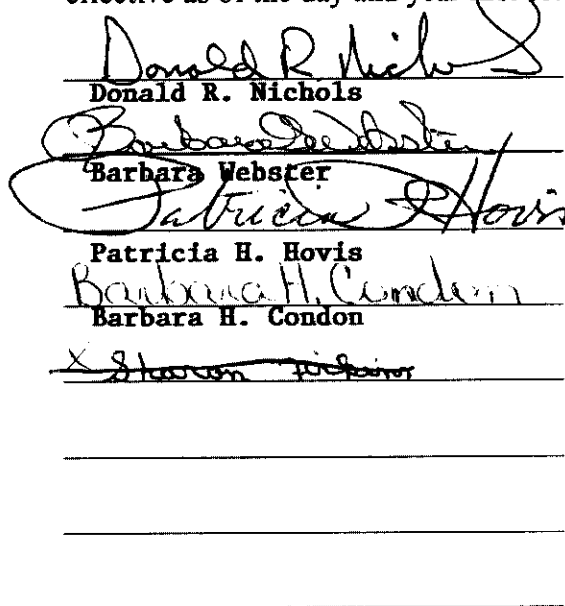 effective as of the day and year
Donald R Nichols
Donald R. Nichols
Barbara Webster
Barbara Webster
Patricia H Hovis
Patricia H. Hovis
Barbara H. Condon
Barbara H. Condon
X Sharon